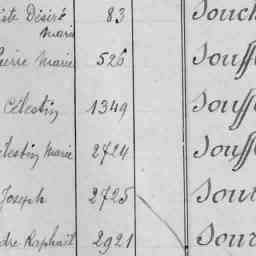 iste Désiré Marie 83 Souch
Pierre Marie 526 Souff
Célestin 1349 Souff
élestin Marie 2724 Souff
Joseph 2725 Sour
dre Raphaël 2921 Sour